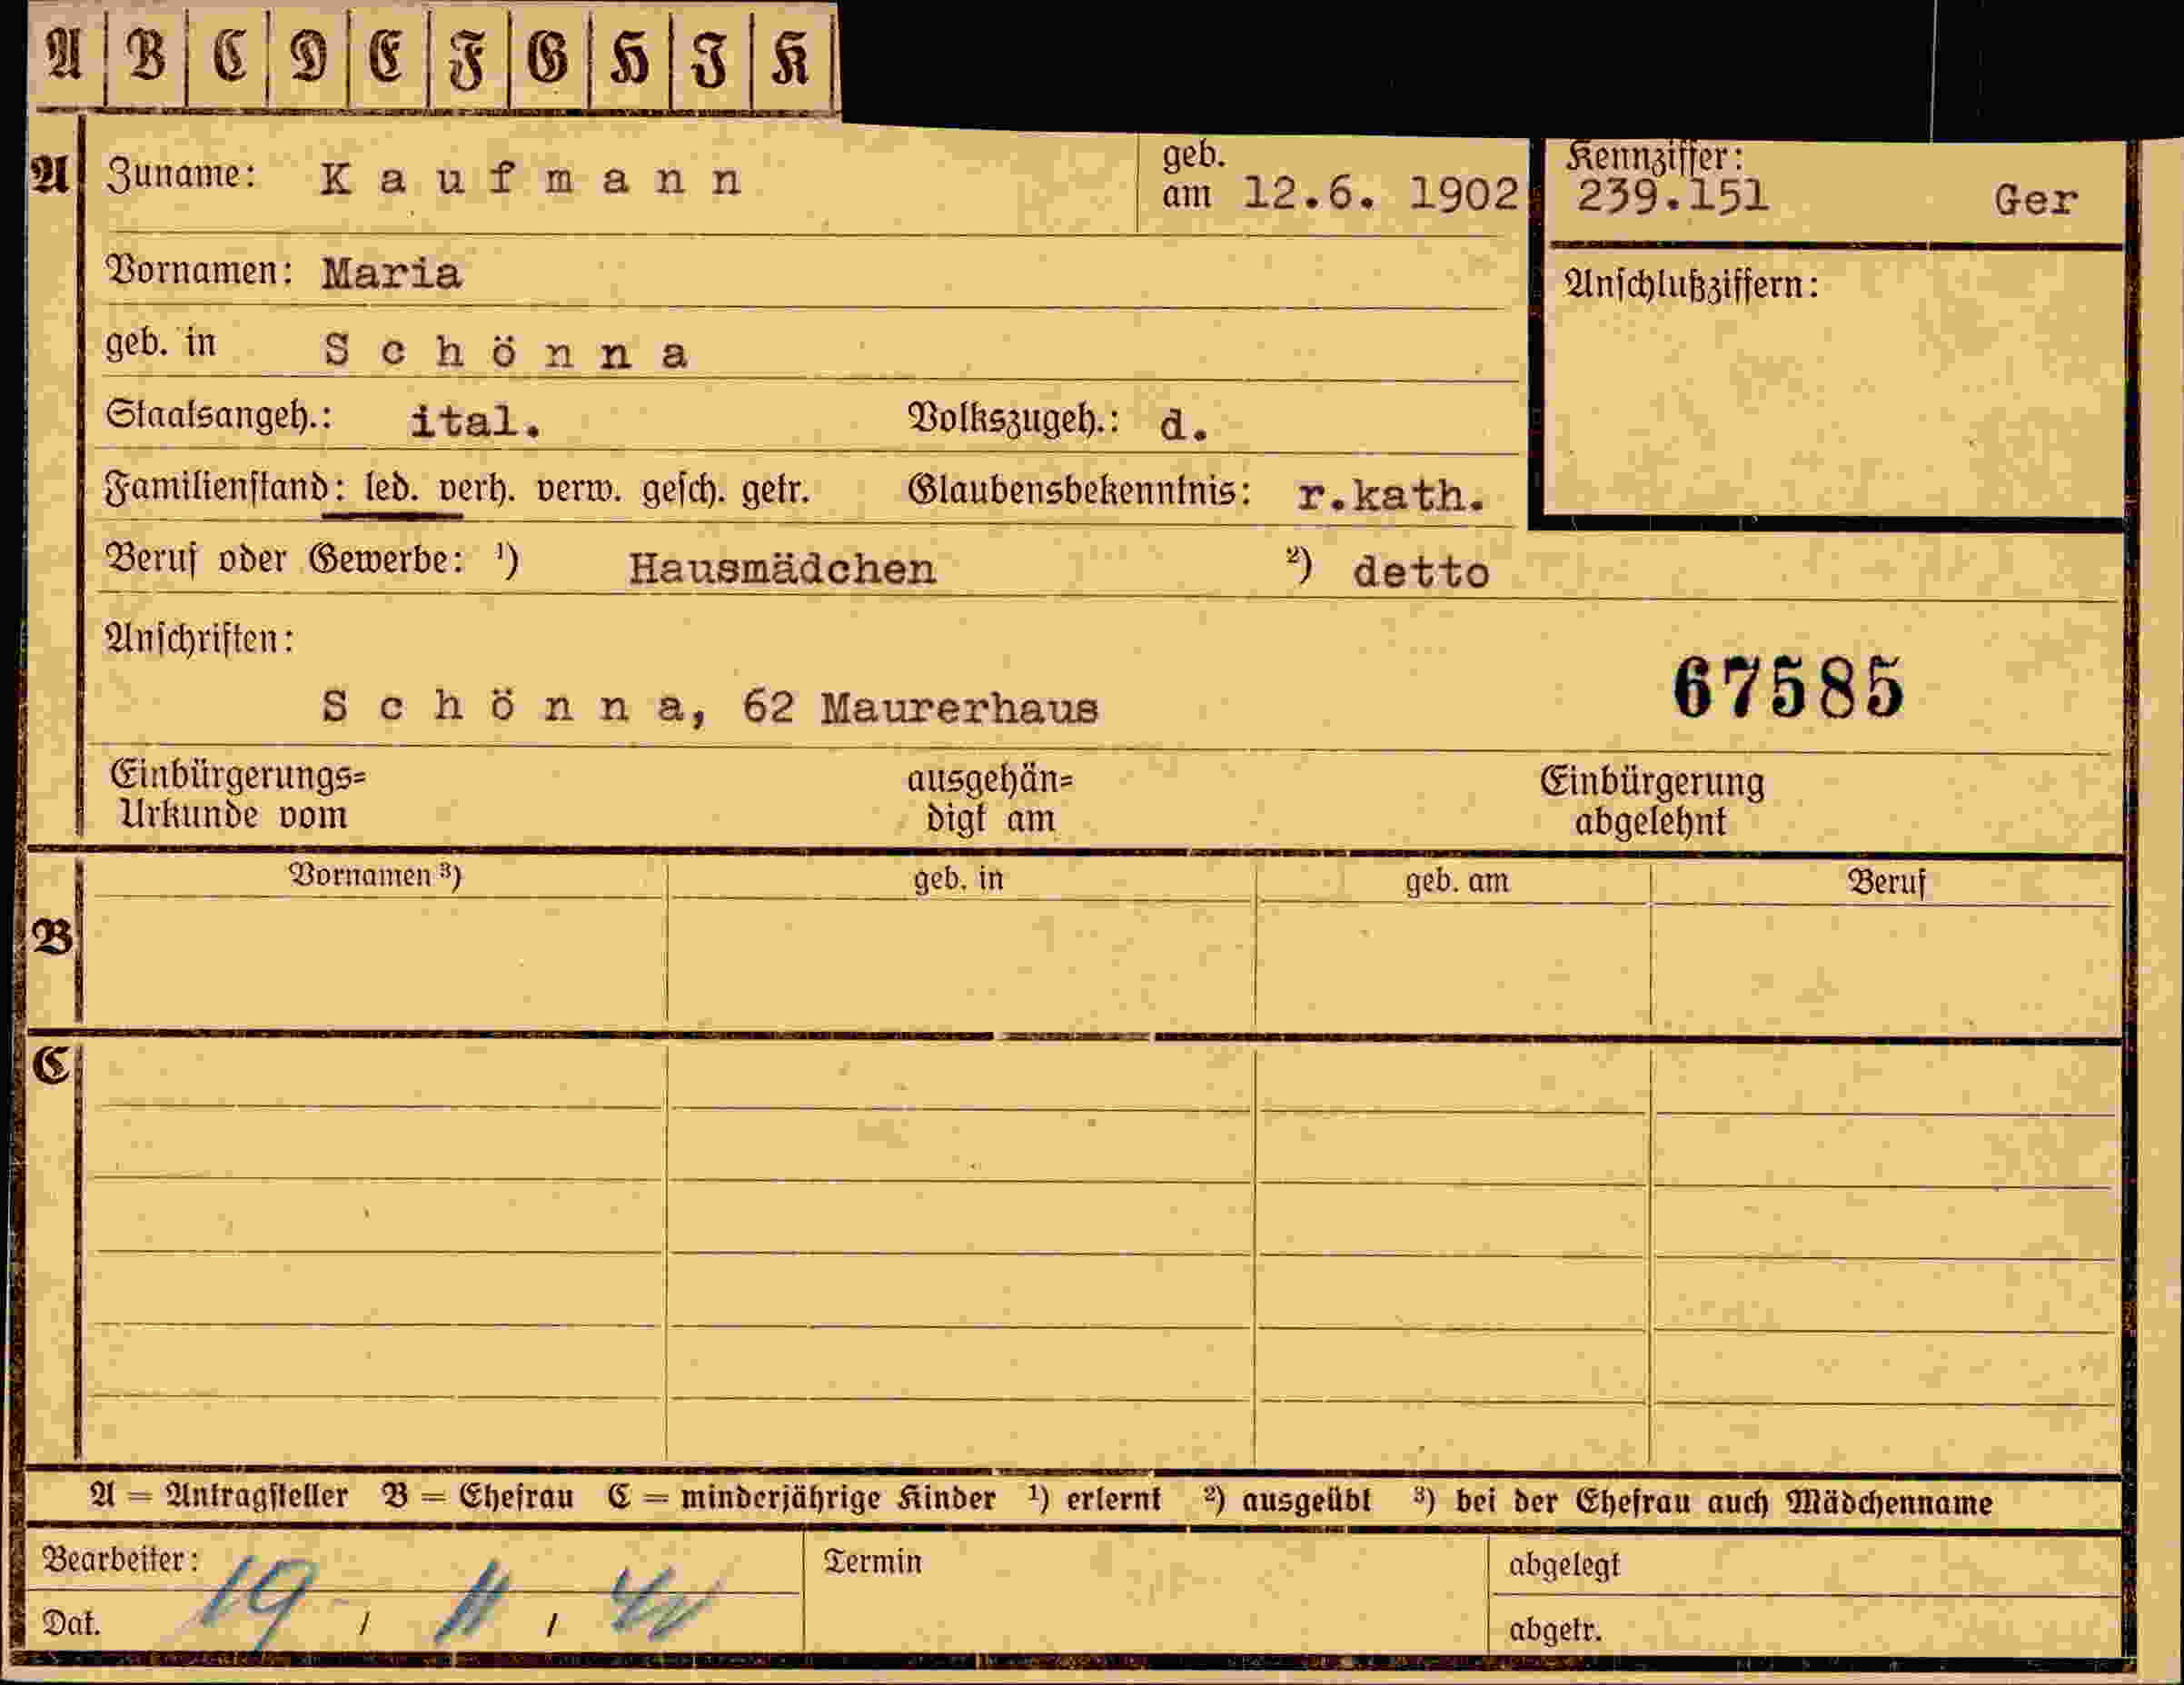 A B C D E F G H I K
A Zuname: Kaufmann geb. am 12.6. 1902 Kennziffer: 239.151 Ger
Vornamen: Maria Anschlußziffern:
geb. in Schönna
Staatsangeh.: ital. Volkszugeh.: d.
Familienstand: led. verh. verw. gesch. getr. Glaubensbekenntnis: r.kath.
Beruf oder Gewerbe: ¹) Hausmädchen ²) detto
Anschriften:
Schönna, 62 Maurerhaus 67585
Einbürgerungs= ausgehän= Einbürgerung
Urkunde vom digt am abgelehnt
Vornamen ³) geb. in geb. am Beruf
B
C
A = Antragsteller B = Ehefrau C = minderjährige Kinder ¹) erlernt ²) ausgeübt ³) bei der Ehefrau auch Mädchenname
Bearbeiter: Termin abgelegt
Dat. 19 / / abgetr.